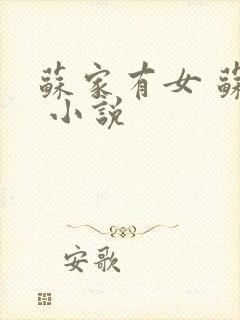 蘇家有女 蘇
小說
安歌